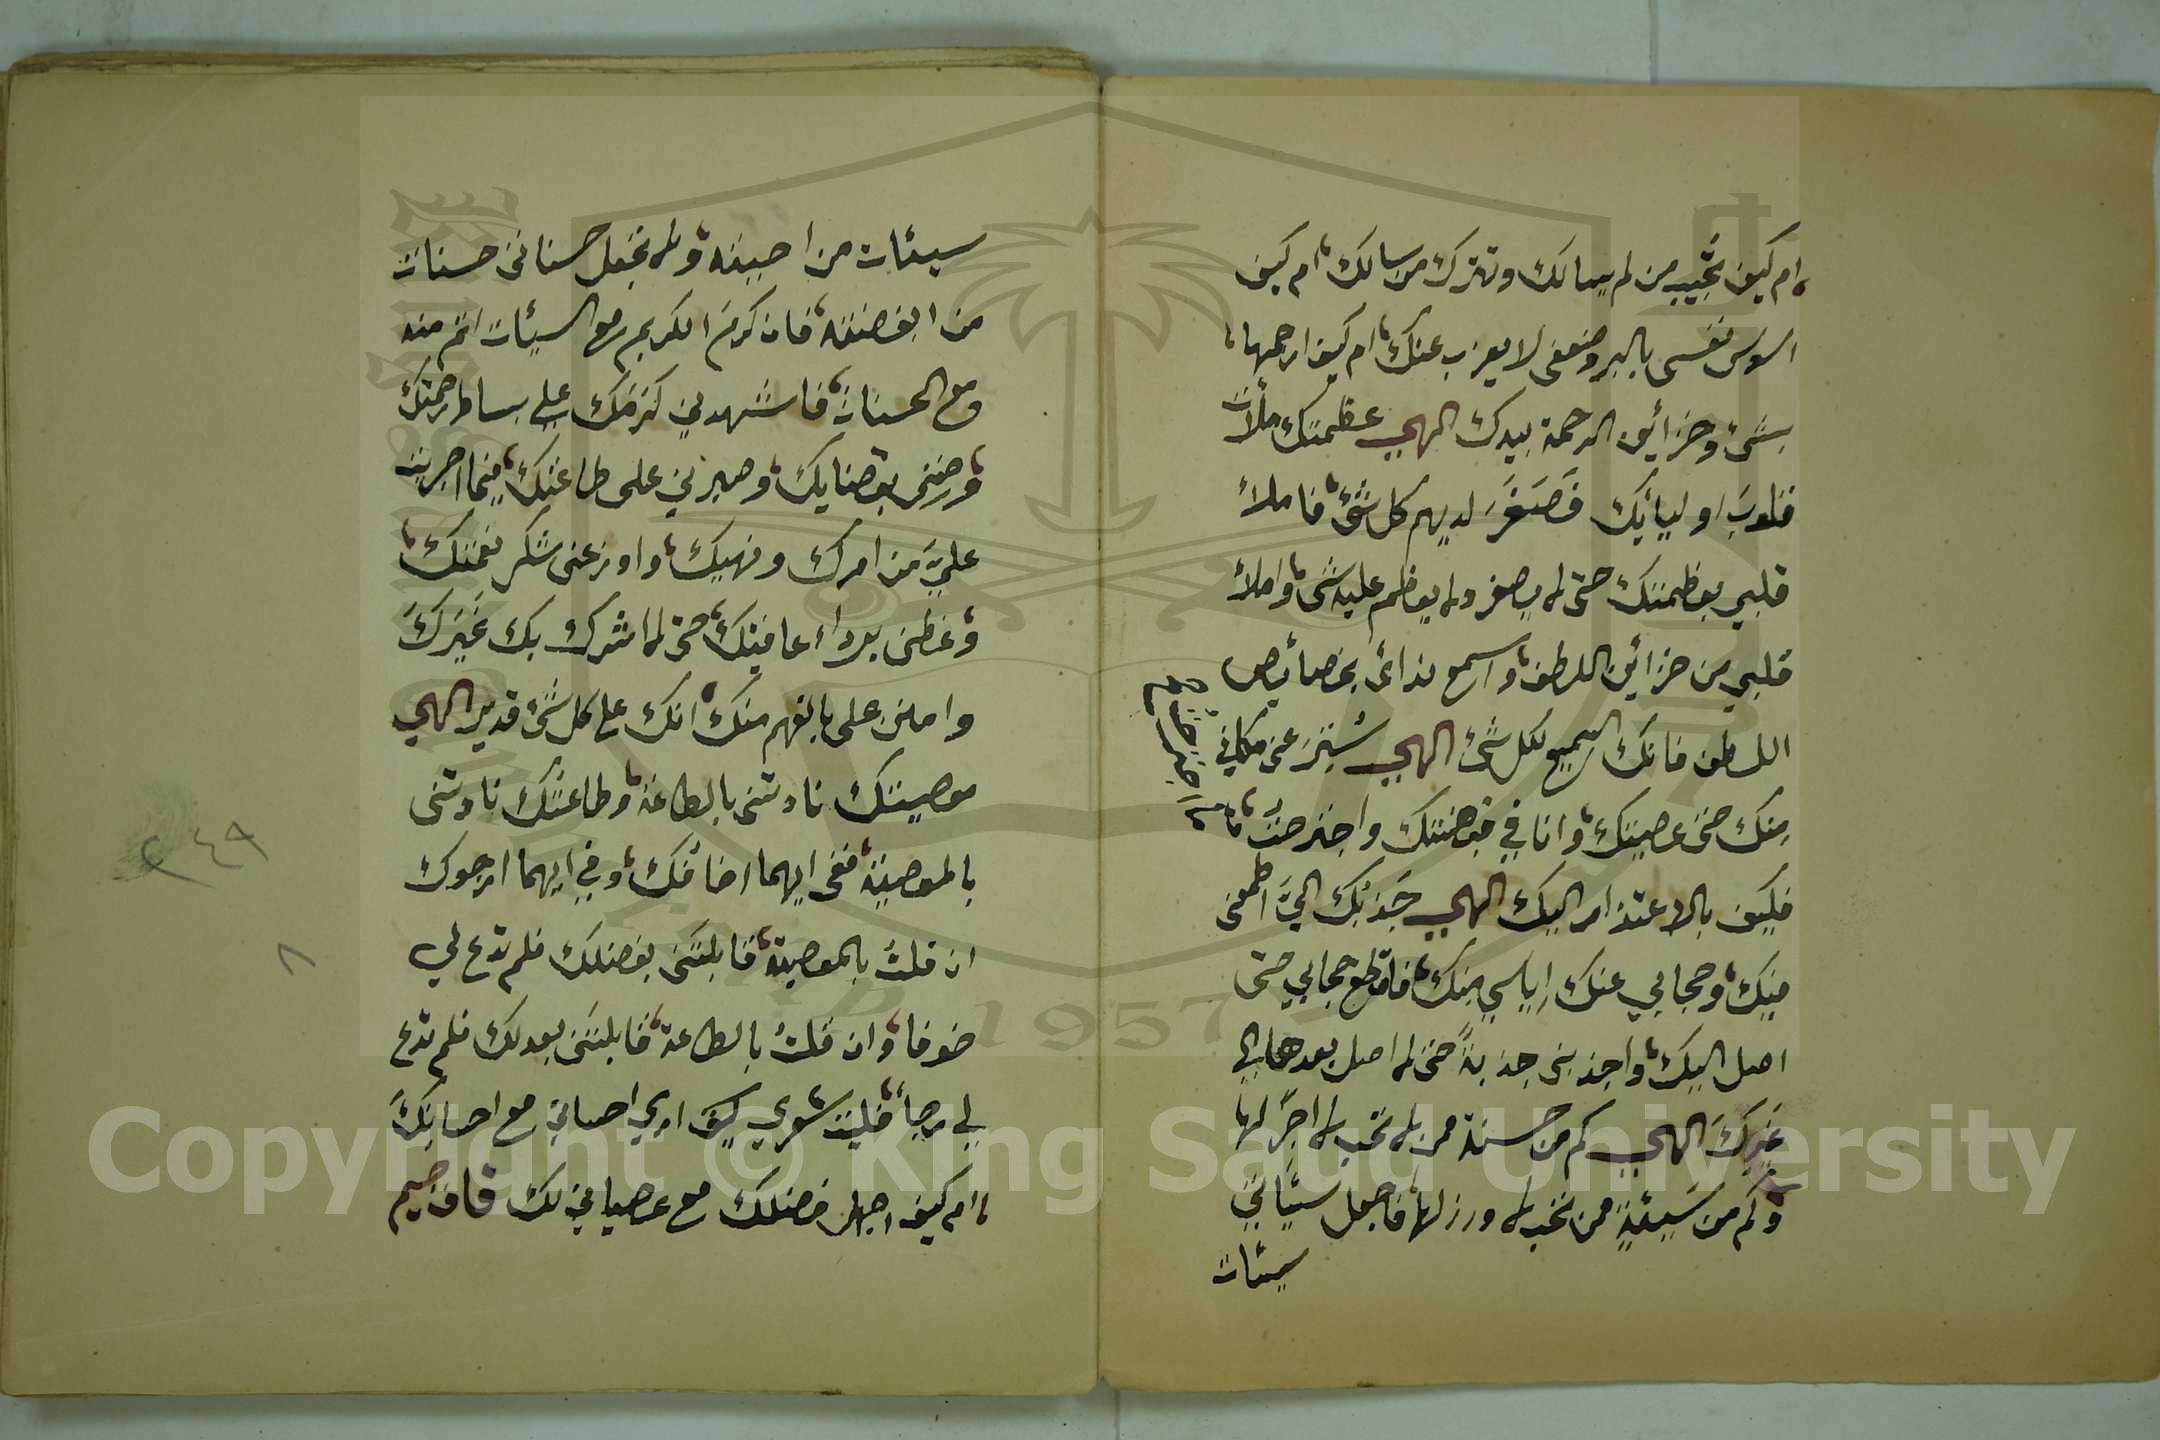 ام كيف تجيب من لم يسالك وتترك من سالك ام كيف
اسوس نفسى بالبر وضعفى لا يعزب عنك ام كيف ارحمها
بشئ وخزائن الرحمة بيدك الهي عظمتك ملأت
قلوبَ اوليائك فَصَغَرَ لديهم كل شئ فاملأ
قلبي بعظمتك حتى لا يصغر ولا يعظم عليه شئ واملأ
قلبي من خزائن اللطف واسمع ندائى بخصائص
اللطف فانك السميع لكل شئ الهي سُتِرَ عنى مكانى
منك حتى عصيتك وانا في قبضتك واجترحتُ ما
فكيف بالاعتذار اليك الهي جَذبُك اليَّ اطمعنى
فيك وحجابي عنك إياسي منك فاقطع حجابي حتى
اصل اليك واجذبنى جذبةً حتى لا اصل بعدها الى
غيرِكَ الهي كم من حسنة ممن لا تحب لا اجرَ لها
وكم من سَيئةٍ ممن تحب لا وزر لها فاجعل سيئاتي
سيئات
سيئات من احببته ولا تجعل حسناتى حسنات
من ابغضته فان كرمَ الكريم مع السيئات اتم منه
مع الحسنات فاشهدني كرَمَك على بساط رحمتك
ورضنى بقضايك وصبرني على طاعتك فيما اجريت
عليَّ من امرك ونهيك واوزعنى شكر نعمتك
وغطنى برداء عافيتك حتى لا اشرك بك غَيرَكَ
وامنن على بالفهم منك انك على كل شئ قدير الهي
معصيتك نادتنى بالطاعة وطاعتُك نادتنى
بالمعصية ففى ايهما اخافُك وفي ايهما ارجوك
ان قلتُ بالمعصية قابلتَنى بفضلك فلم تدع لي
خوفا وان قلتُ بالطاعة قابلتَنى بعدلك فلم تدع
لي رجاً فليت شعري كيف ارى احسانى مع احسانِكَ
ام كيف اجهل فضلك مع عصيانى لك قاف جيم
٢٤٩
٨
Copyright © King Saud University
1957